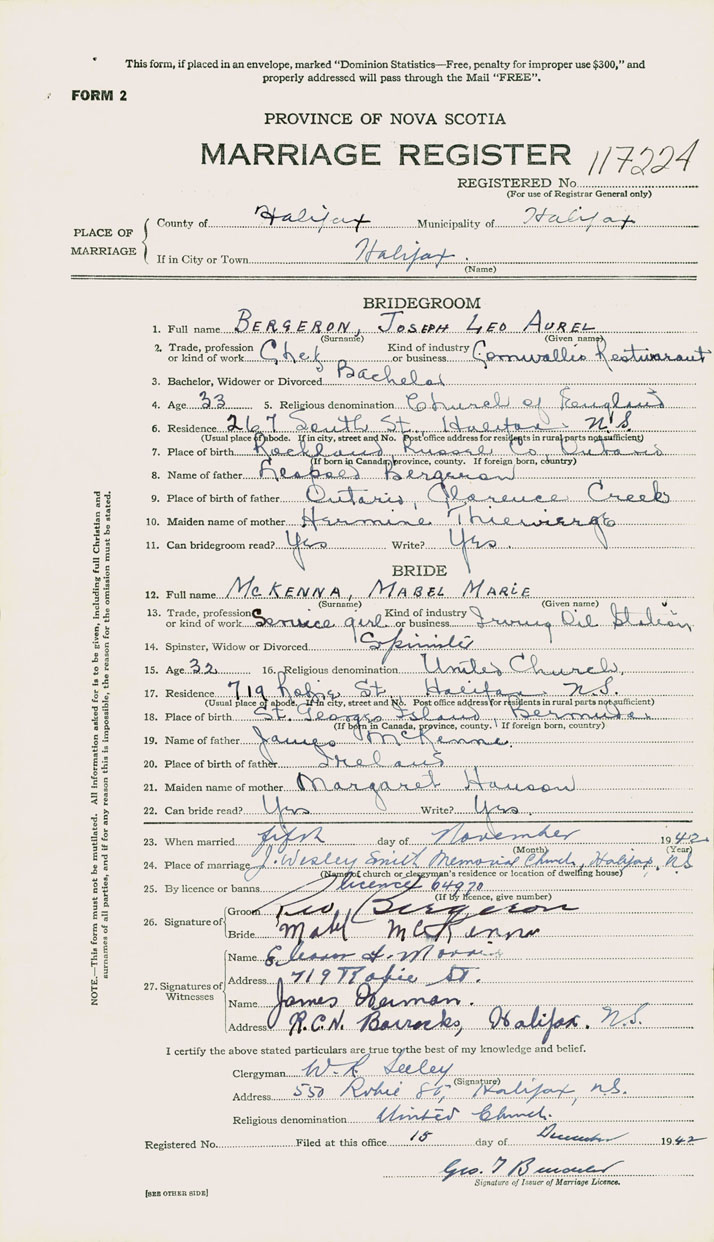 This form, if placed in an envelope, marked "Dominion Statistics—Free, penalty for improper use $300," and
properly addressed will pass through the Mail "FREE".
FORM 2
PROVINCE OF NOVA SCOTIA
MARRIAGE REGISTER 117224
REGISTERED No.
(For use of Registrar General only)
PLACE OF MARRIAGE
County of Halifax Municipality of Halifax
If in City or Town Halifax.
(Name)
BRIDEGROOM
1. Full name BERGERON, JOSEPH LEO AUREL
(Surname) (Given name)
2. Trade, profession or kind of work Chef Kind of industry or business Cornwallis Restuarant
3. Bachelor, Widower or Divorced Bachelor
4. Age 33 5. Religious denomination Church of England
6. Residence 267 South St. Halifax N.S.
(Usual place of abode. If in city, street and No. Post office address for residents in rural parts not sufficient)
7. Place of birth Rockland Russel Co. Ontario
(If born in Canada, province, county. If foreign born, country)
8. Name of father Bergeron
9. Place of birth of father Ontario, Clarence Creek
10. Maiden name of mother Hermine
11. Can bridegroom read? Yes Write? Yes.
BRIDE
12. Full name McKENNA, MABEL MARIE
(Surname) (Given name)
13. Trade, profession or kind of work Service girl Kind of industry or business Irving Oil Station
14. Spinster, Widow or Divorced Spinster
15. Age 32 16. Religious denomination United Church.
17. Residence 719 Robie St. Halifax N.S.
(Usual place of abode. If in city, street and No. Post office address for residents in rural parts not sufficient)
18. Place of birth St. Georges Island, Bermuda
(If born in Canada, province, county. If foreign born, country)
19. Name of father James McKenna.
20. Place of birth of father Ireland
21. Maiden name of mother Margaret Hanson
22. Can bride read? Yes Write? Yes.
23. When married fifth day of November 1942
(Month) (Year)
24. Place of marriage J. Wesley Smith Memorial Church, Halifax, N.S.
(Name of church or clergyman's residence or location of dwelling house)
25. By licence or banns licence 64970
(If by licence, give number)
26. Signature of
Groom Leo Bergeron
Bride Mabel McKenna
27. Signatures of Witnesses
Name Eleanor H. Morris
Address 719 Robie St.
Name James
Address R.C.N. Barracks, Halifax. N.S.
I certify the above stated particulars are true to the best of my knowledge and belief.
Clergyman W. R. Seeley
(Signature)
Address 550 Robie St., Halifax, N.S.
Religious denomination United Church.
Registered No. Filed at this office 15 day of December 1942
Geo. T
Signature of Issuer of Marriage Licence.
[SEE OTHER SIDE]
NOTE.—This form must not be mutilated. All information asked for is to be given, including full Christian and
surnames of all parties, and if for any reason this is impossible, the reason for the omission must be stated.